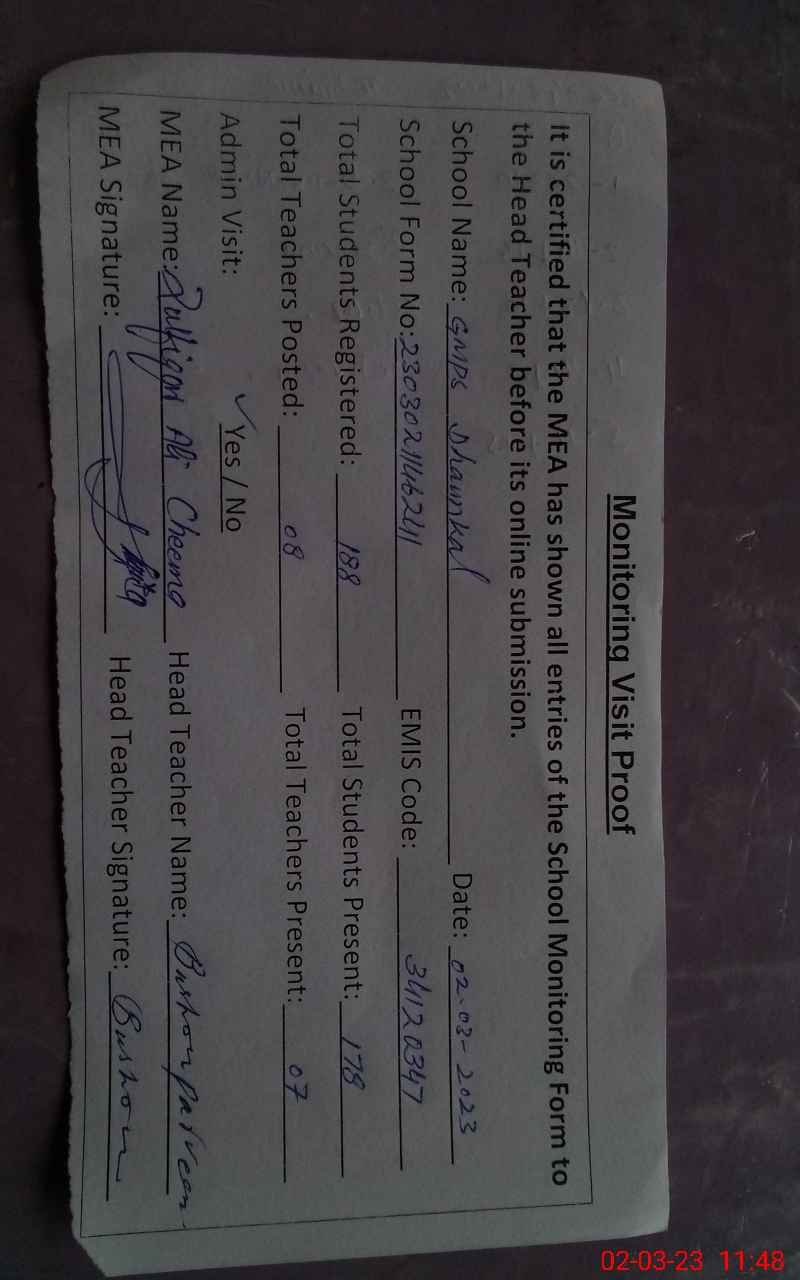 Monitoring Visit Proof
It is certified that the MEA has shown all entries of the School Monitoring Form to
the Head Teacher before its online submission.
School Name: GMPS Dhaunkal Date: 02-03-2023
School Form No: EMIS Code: 34120347
Total Students Registered: 188 Total Students Present: 178
Total Teachers Posted: 08 Total Teachers Present: 07
Admin Visit: ✓ Yes / No
MEA Name: Zulfiqar Ali Cheema Head Teacher Name: Bushra Parveen
MEA Signature: Head Teacher Signature: Bushra
02-03-23 11:48